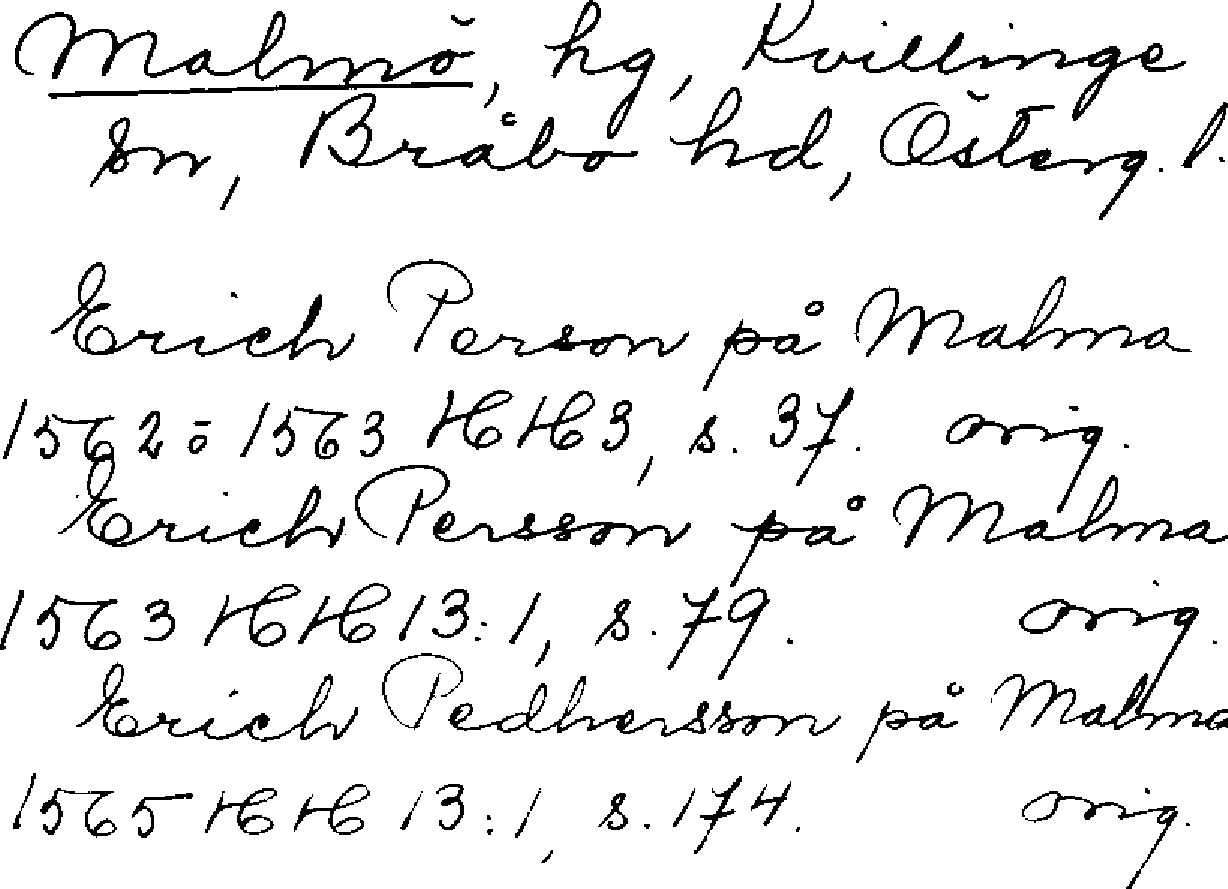 Malmö, hg, Kvillinge
sn, Bråbo hd, Österg. l.
Erich Person på Malma
1562 o 1563 HH 3, s. 37. orig.
Erich Persson på Malma
1563 HH 13:1, s. 79. orig.
Erich Pedhersson på Malma
1565 HH 13:1, s. 174. orig.